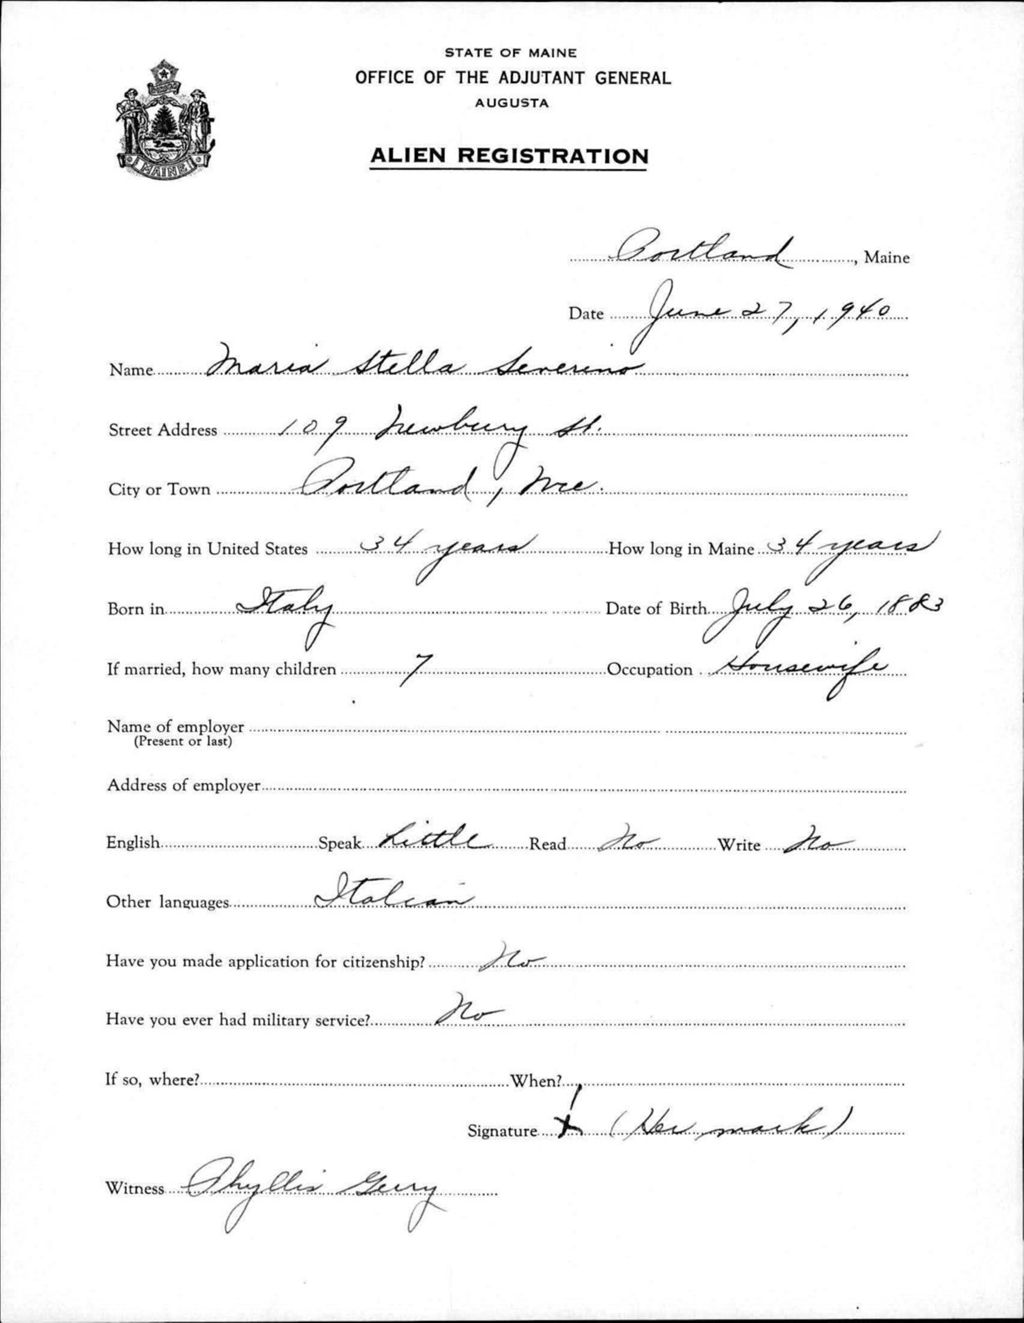 STATE OF MAINE
OFFICE OF THE ADJUTANT GENERAL
AUGUSTA
ALIEN REGISTRATION
MAINE
Portland, Maine
Date June 27, 1940
Name Maria Stella Severino
Street Address 109 Newbury St.
City or Town Portland, Me.
How long in United States 34 years How long in Maine 34 years
Born in Italy Date of Birth July 26, 1883
If married, how many children 7 Occupation Housewife
Name of employer
(Present or last)
Address of employer
English Speak Little Read No Write No
Other languages Italian
Have you made application for citizenship? No
Have you ever had military service? No
If so, where? When?
Signature X (Her mark)
Witness Phyllis Gerry